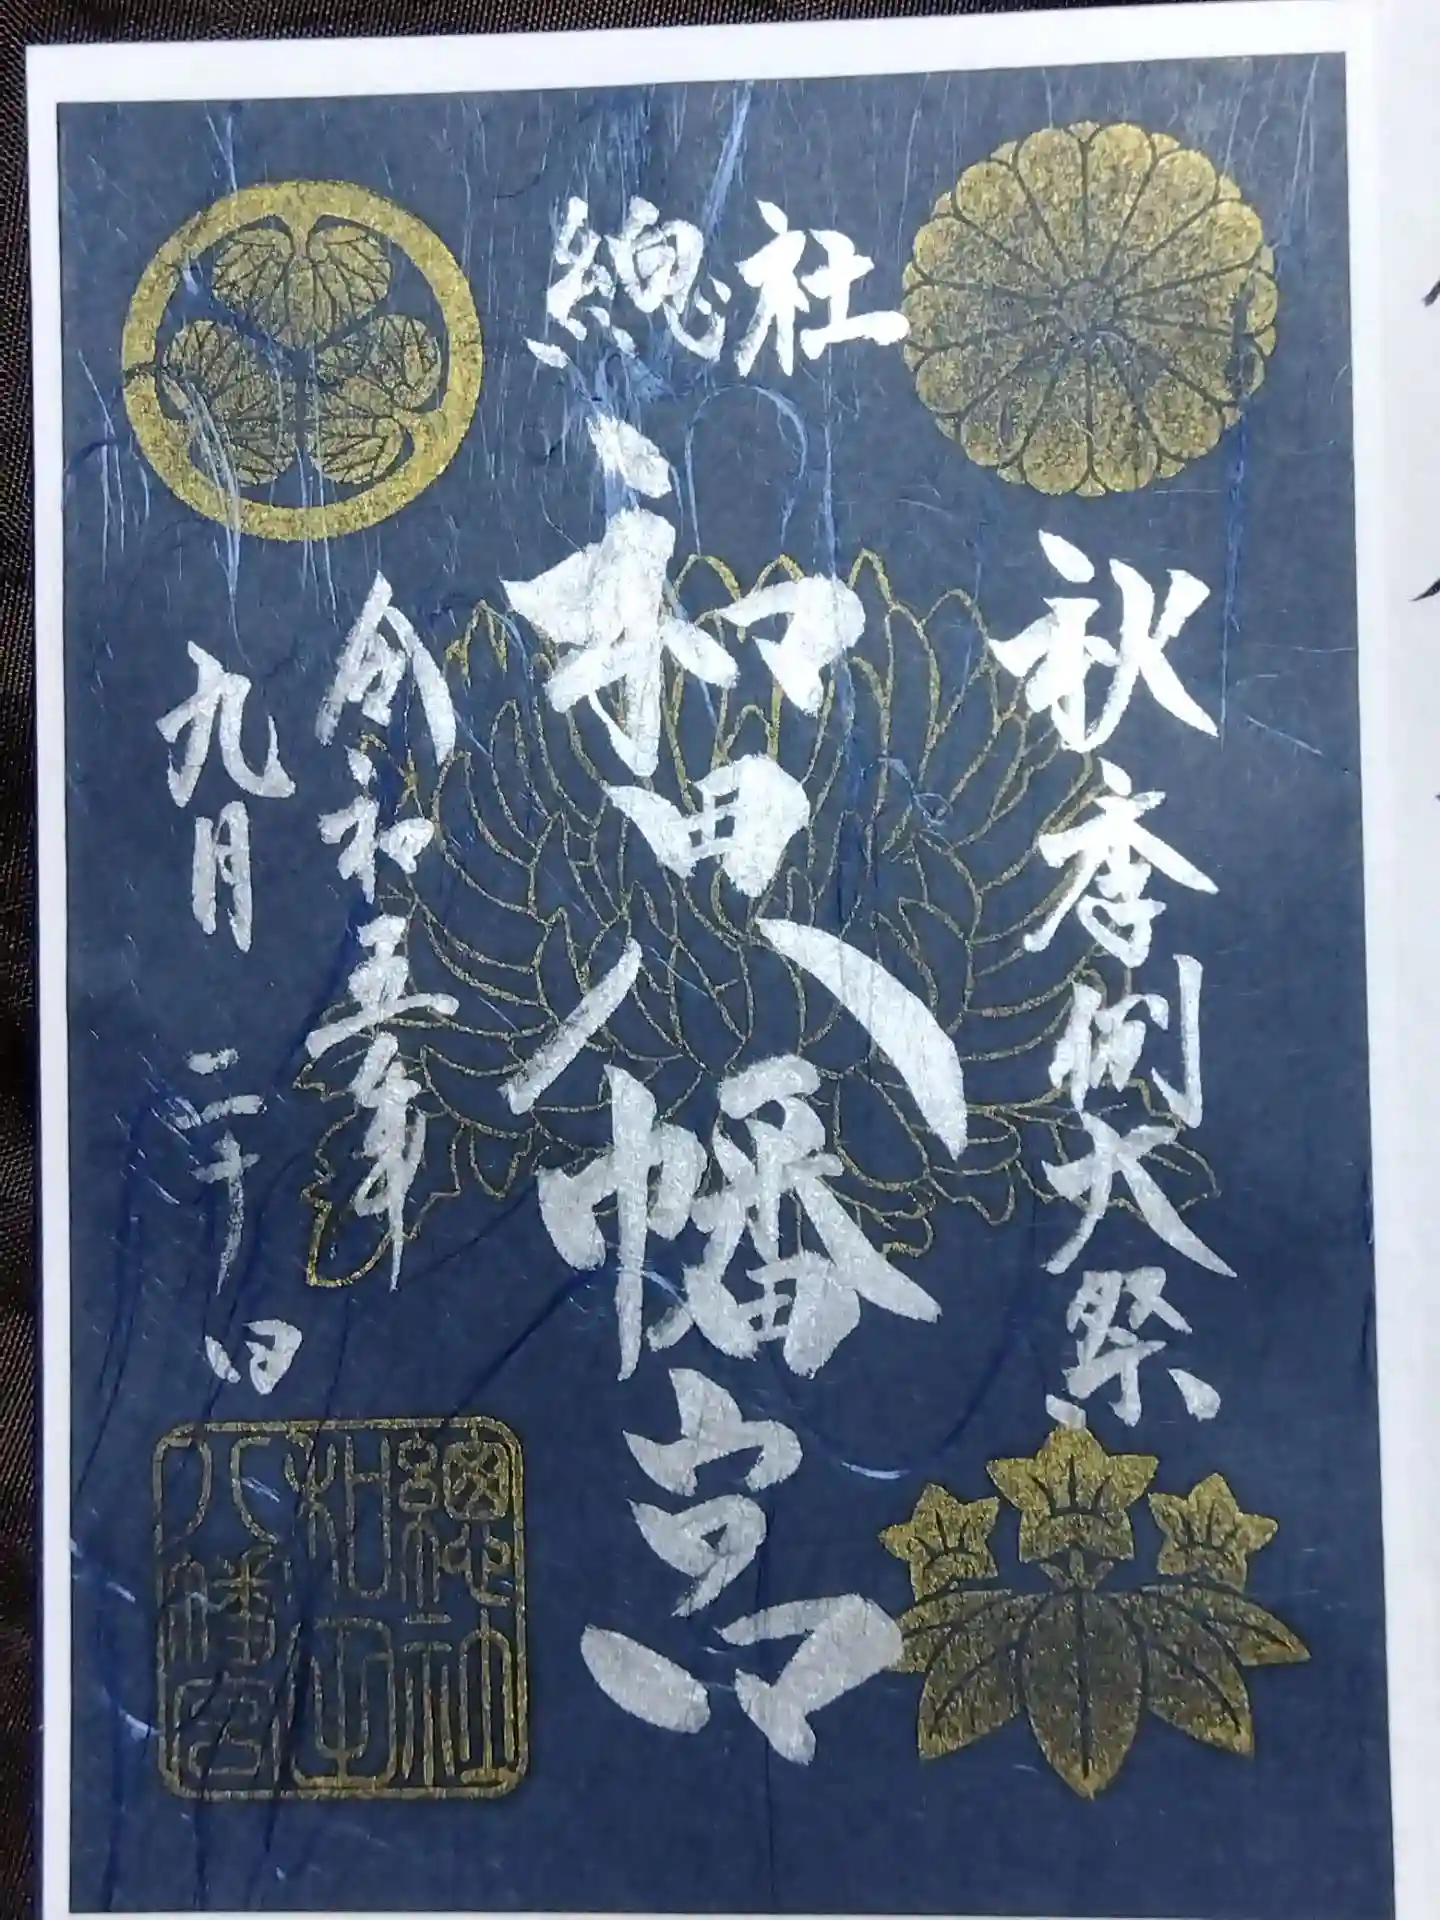 總社
秋季例大祭
和田八幡宮
令和五年
九月二十日
總社
和田
八幡宮